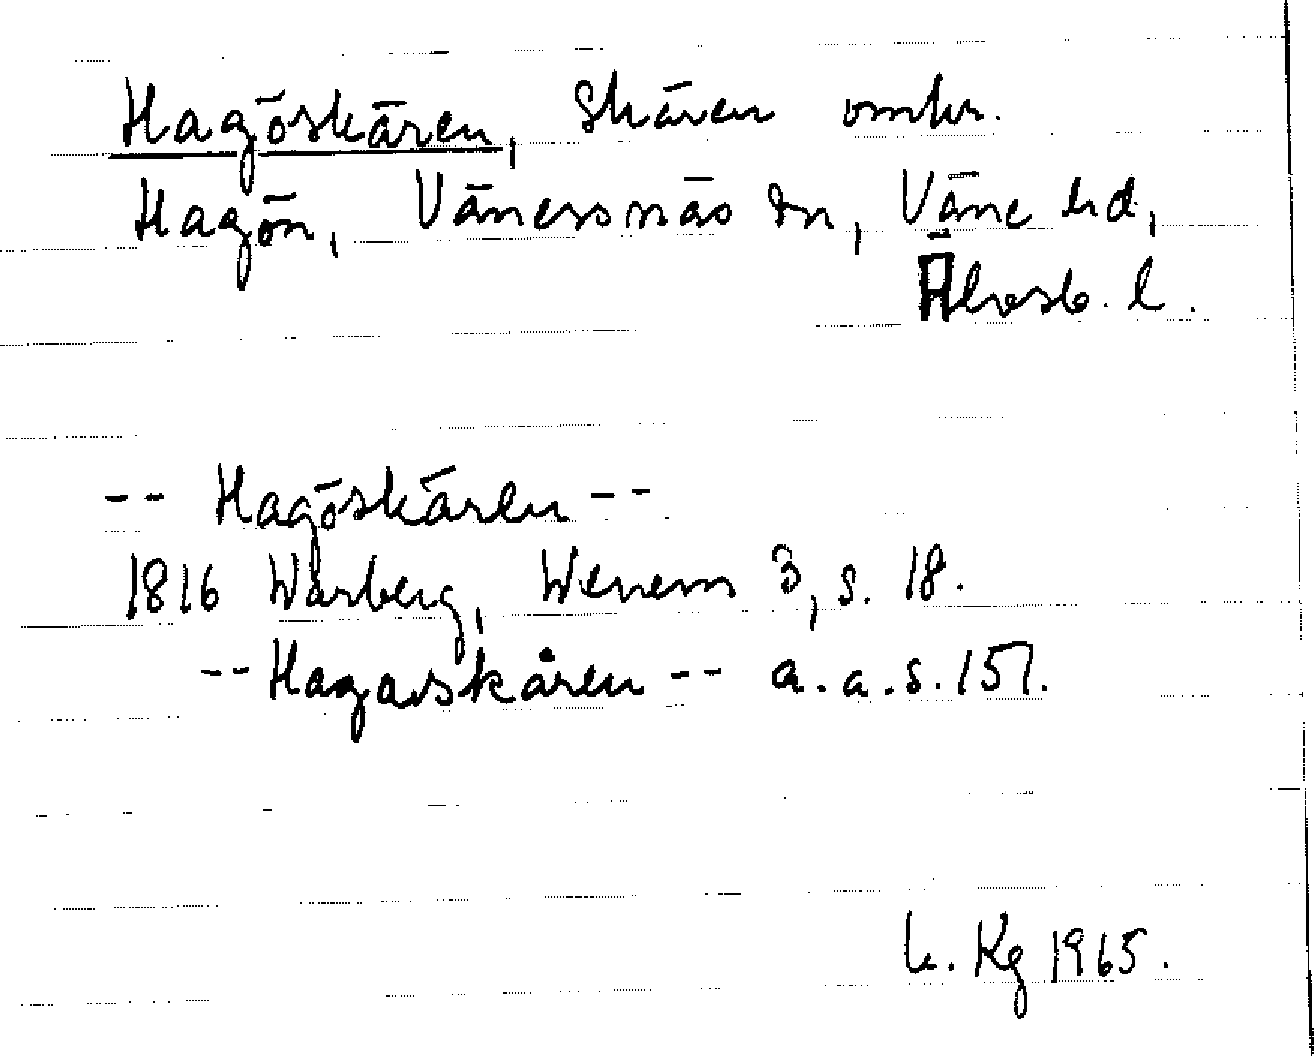 Hagöskären, Skären omkr.
Hagön, Vänersnäs sn, Väne hd,
Älvsb. l.
-- Hagöskären --
1816 Warberg, Wenern 3, s. 18.
-- Hagaskären -- a. a. s. 151.
Kg 1965.